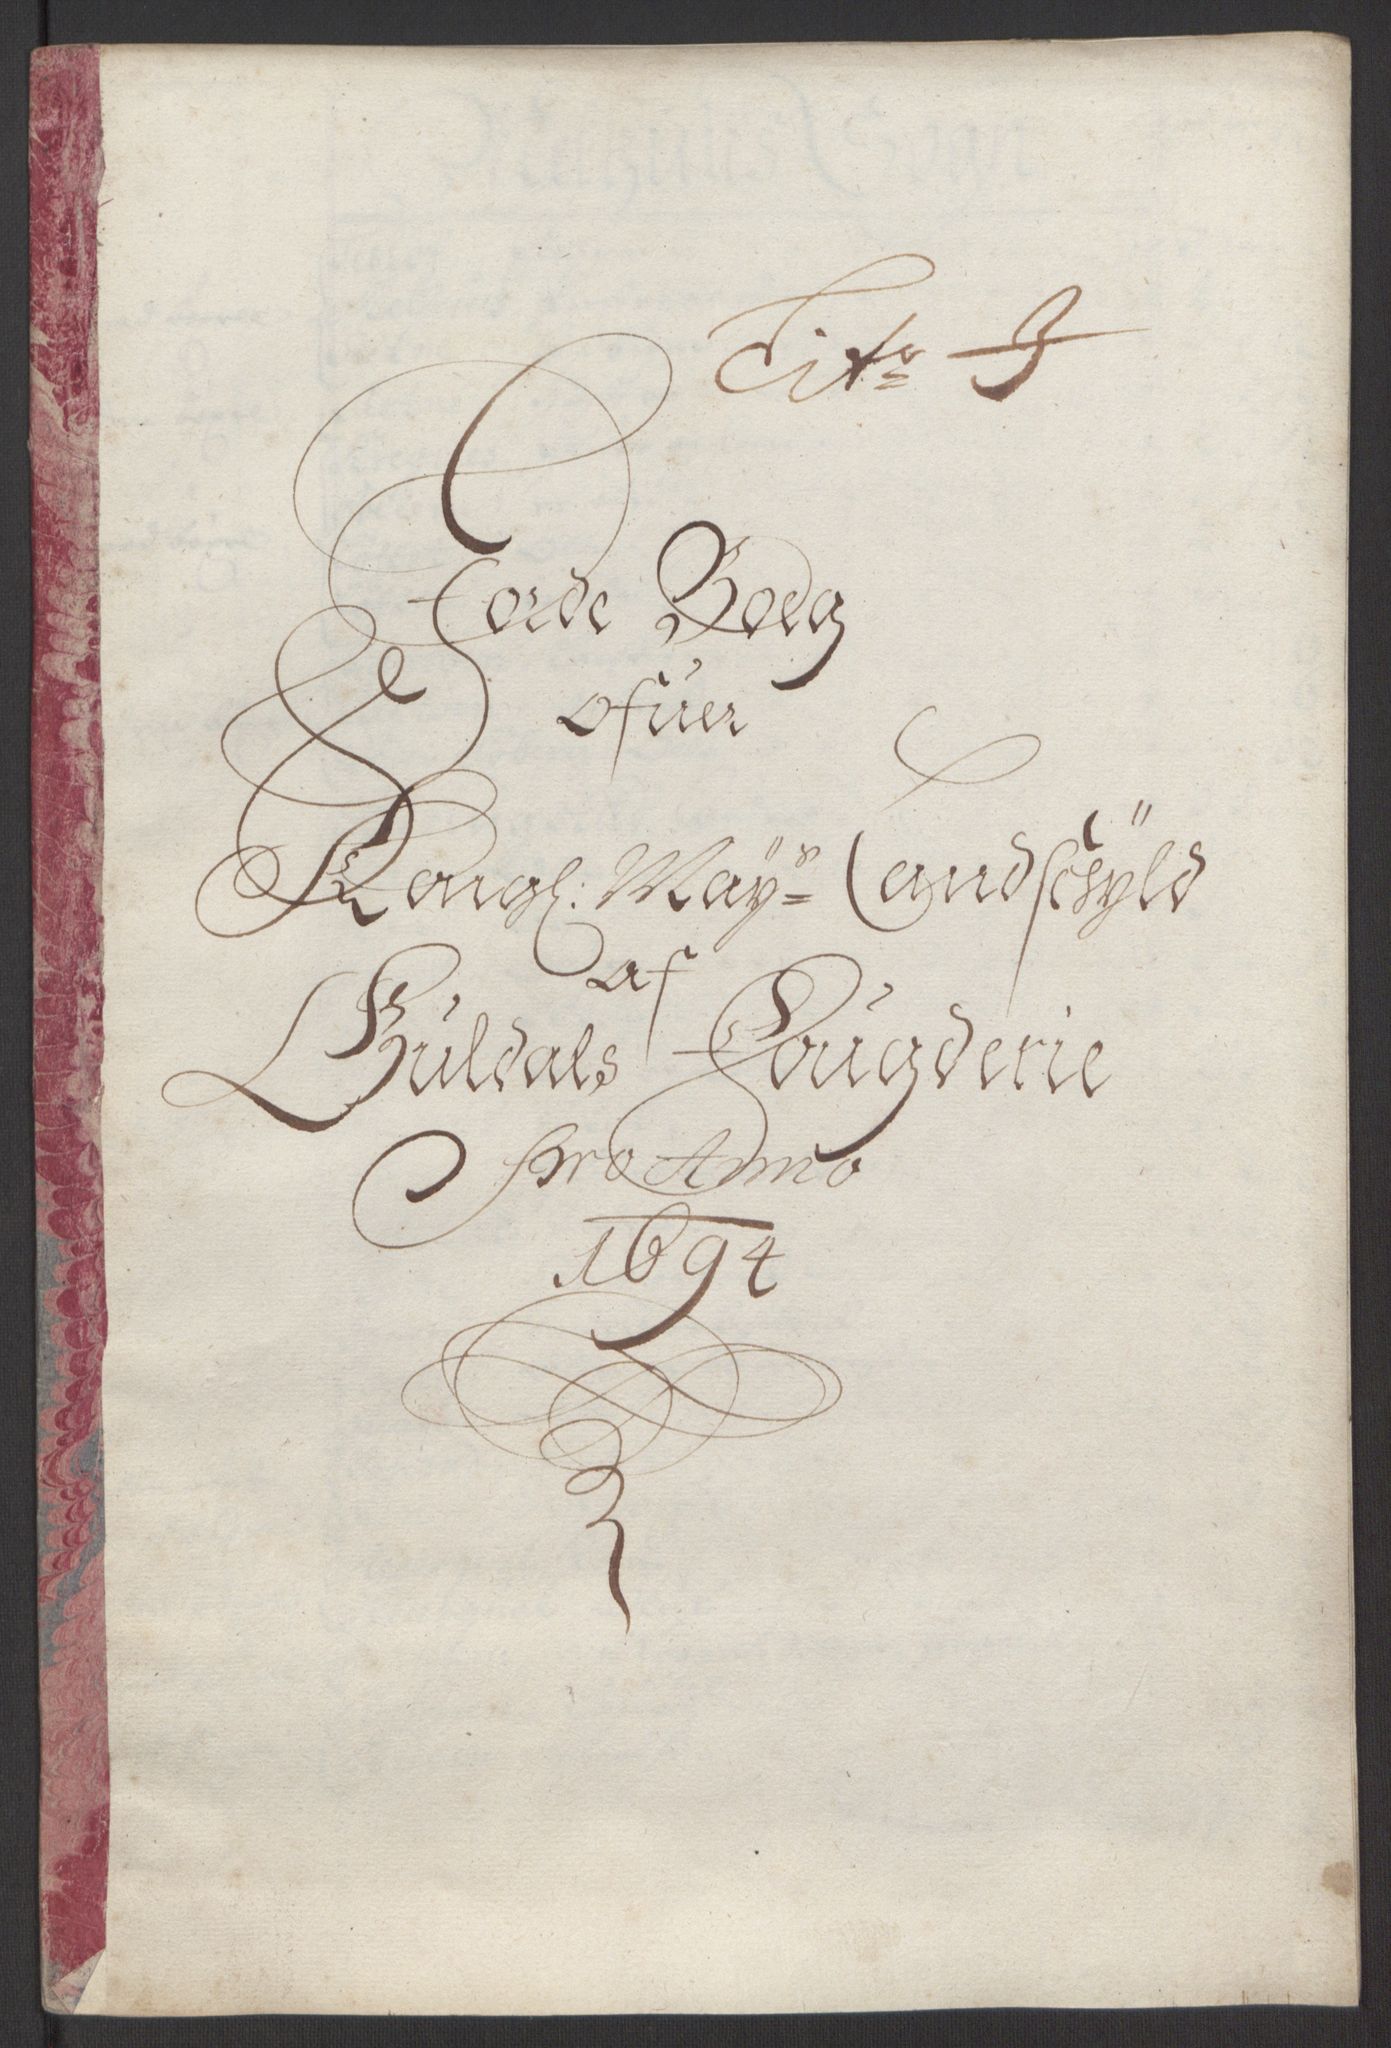 Litr J
Jorde Bog
ofuer
Kongl: Mayts Landschÿld
af
Guldals Fougderie
Pro Anno
1694